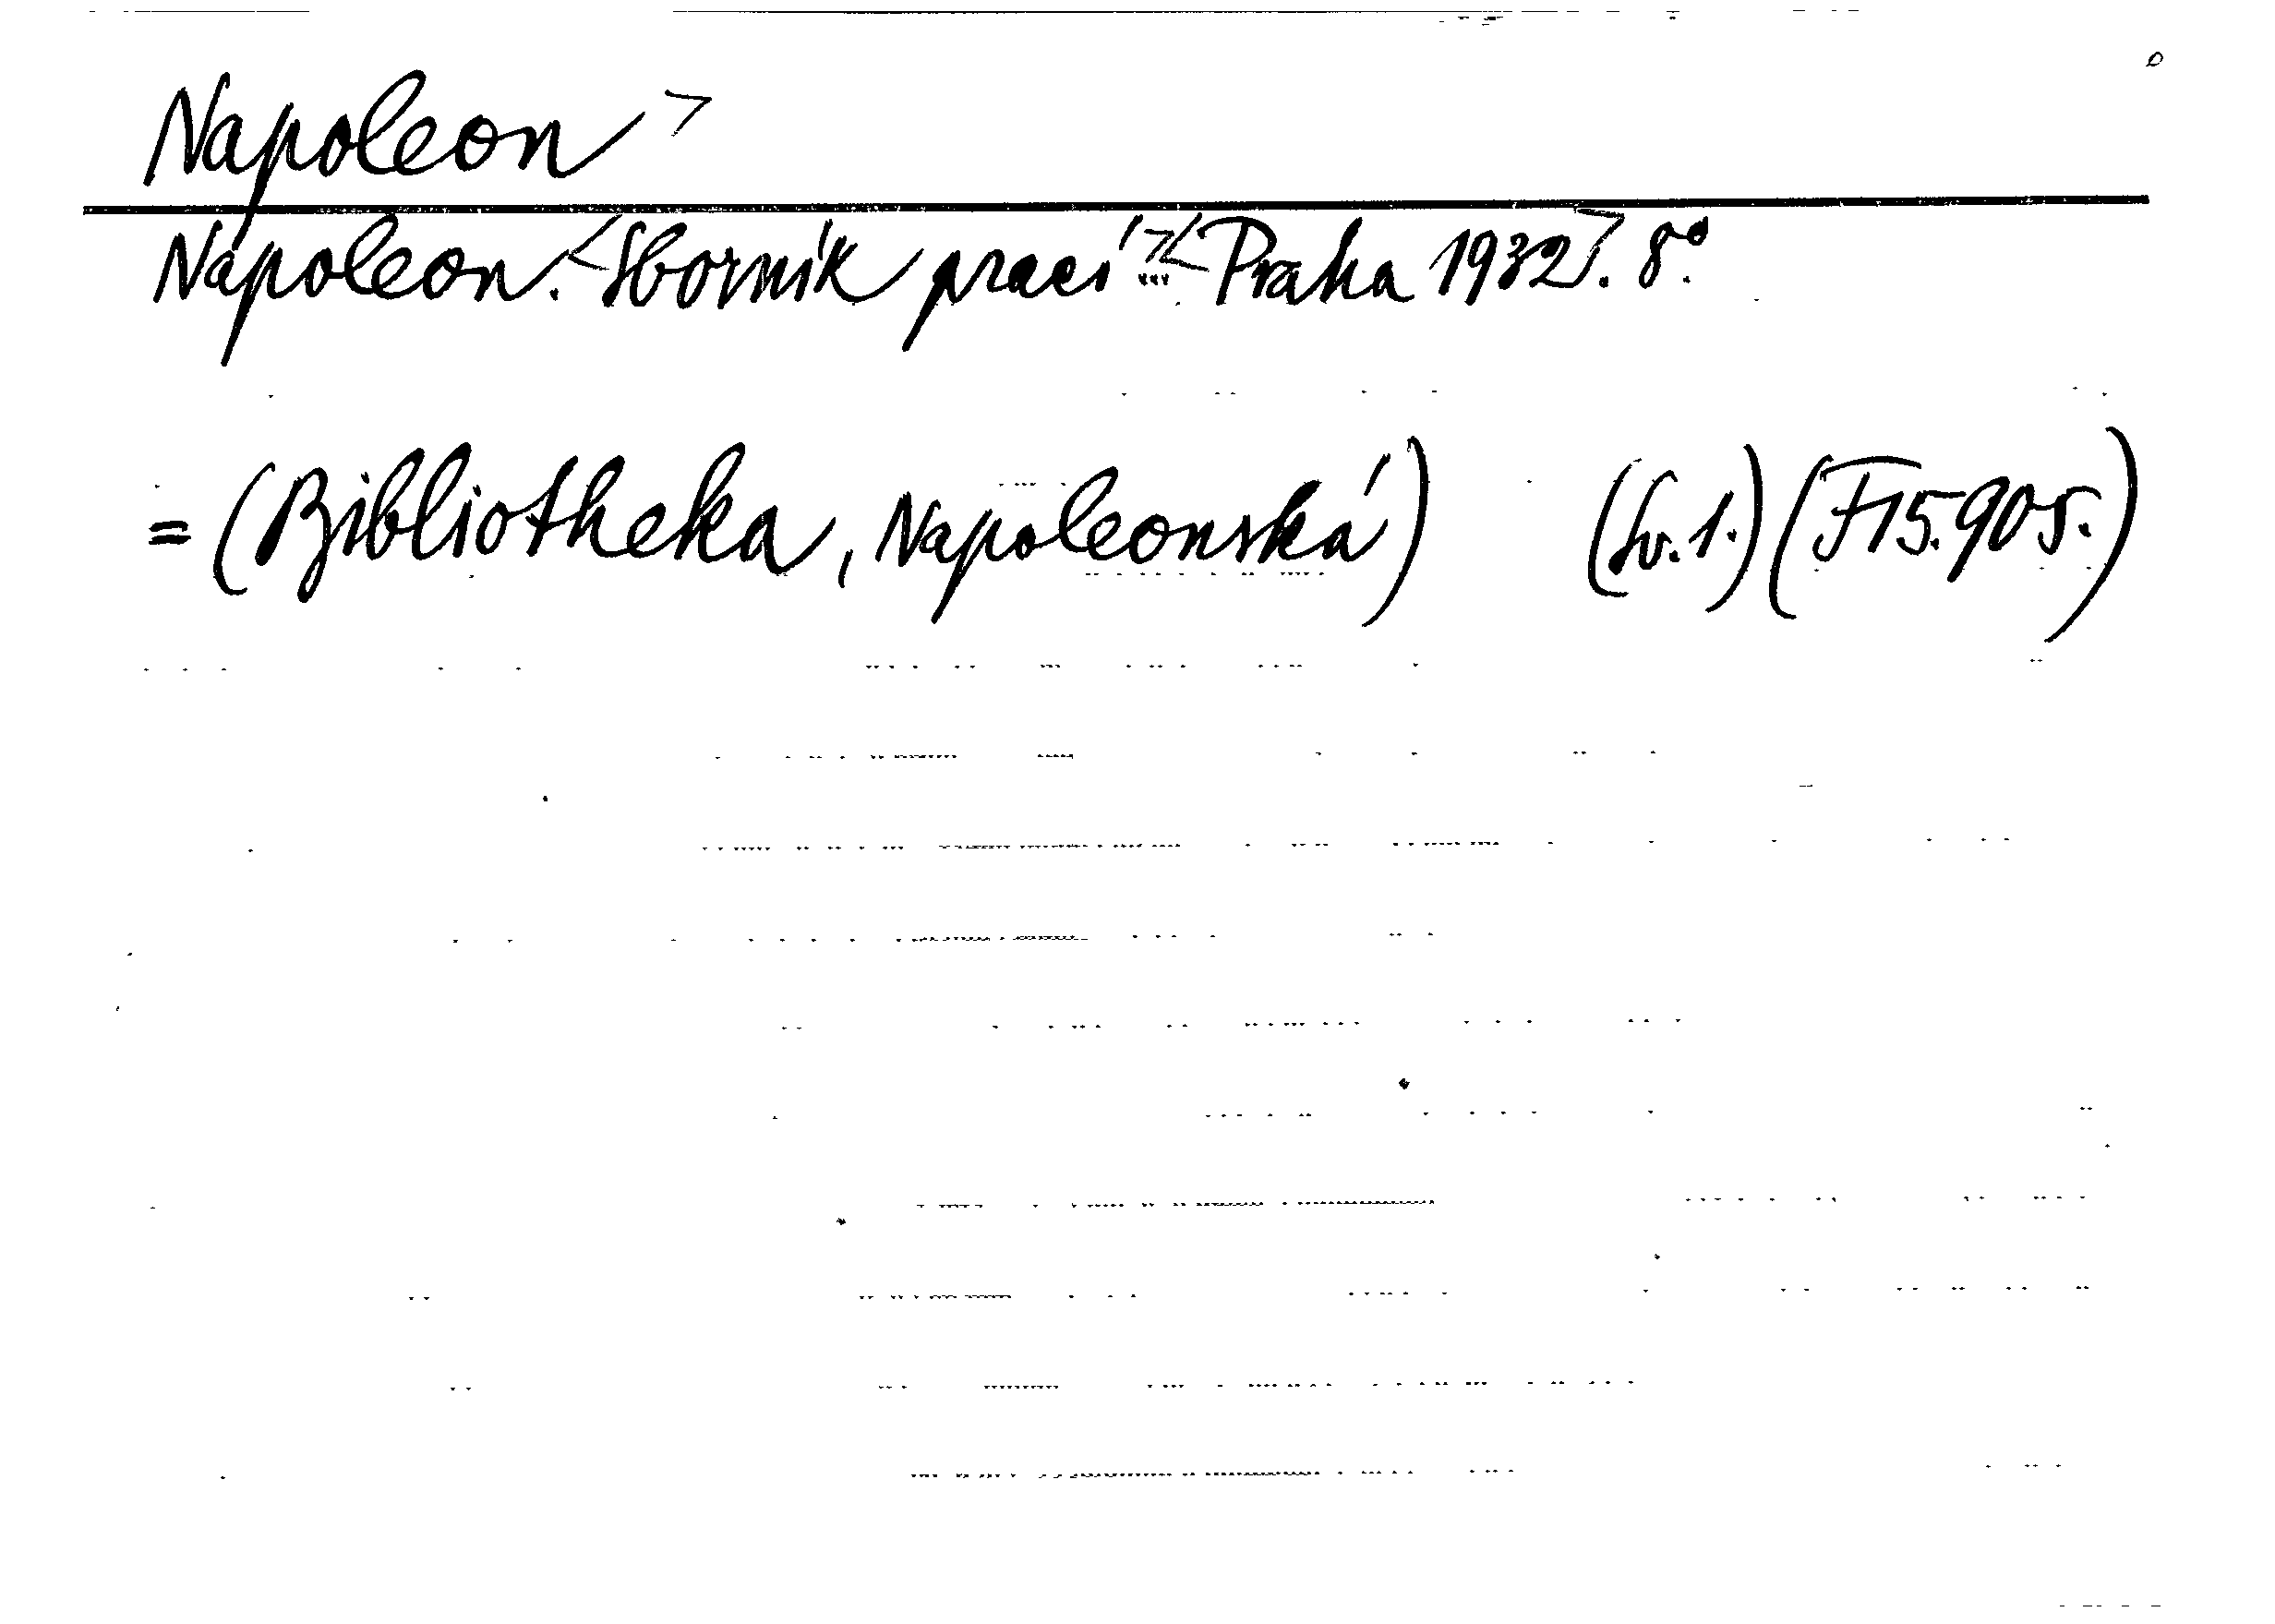 Napoleon
Napoleon. Sborník prací ... Praha 1932. 8°.
= (Bibliotheka, Napoleonská) (Sv. 1.) (F 15.905.)